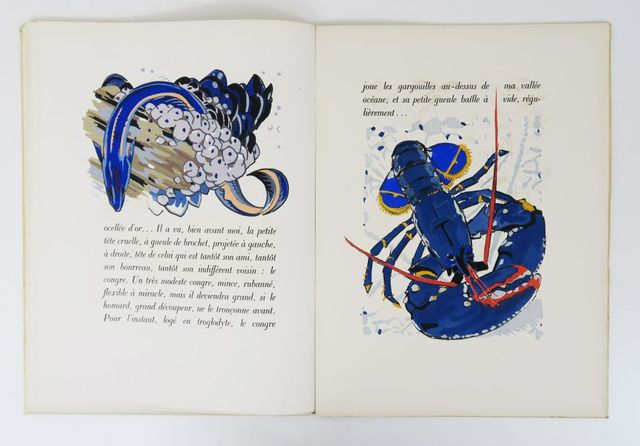 ocellée d'or... Il a vu, bien avant moi, la petite
tête cruelle, à gueule de brochet, projetée à gauche,
à droite, tête de celui qui est tantôt son ami, tantôt
son bourreau, tantôt son indifférent voisin : le
congre. Un très modeste congre, mince, rubanné,
flexible à miracle, mais il deviendra grand, si le
homard, grand découpeur, ne le tronçonne avant.
Pour l'instant, logé en troglodyte, le congre
joue les gargouilles au-dessus de ma vallée
océane, et sa petite gueule baille à vide, régu-
lièrement...